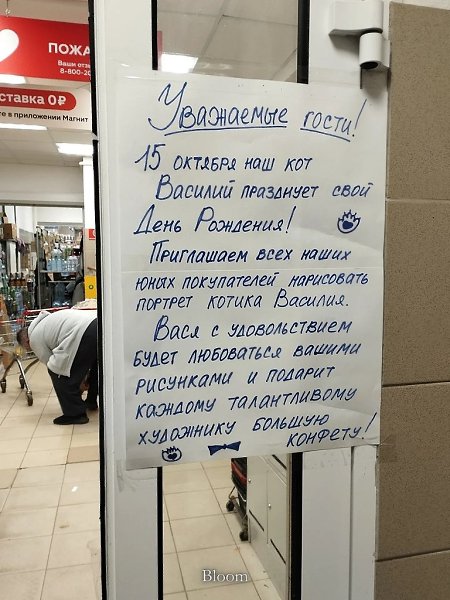 ПОЖА
Ваши отз
8-800-20
ставка 0₽
те в приложении Магнит
Уважаемые гости!
15 октября наш кот
Василий празднует свой
День Рождения!
Приглашаем всех наших
юных покупателей нарисовать
портрет котика Василия.
Вася с удовольствием
будет любоваться вашими
рисунками и подарит
каждому талантливому
художнику большую
конфету!
Bloom